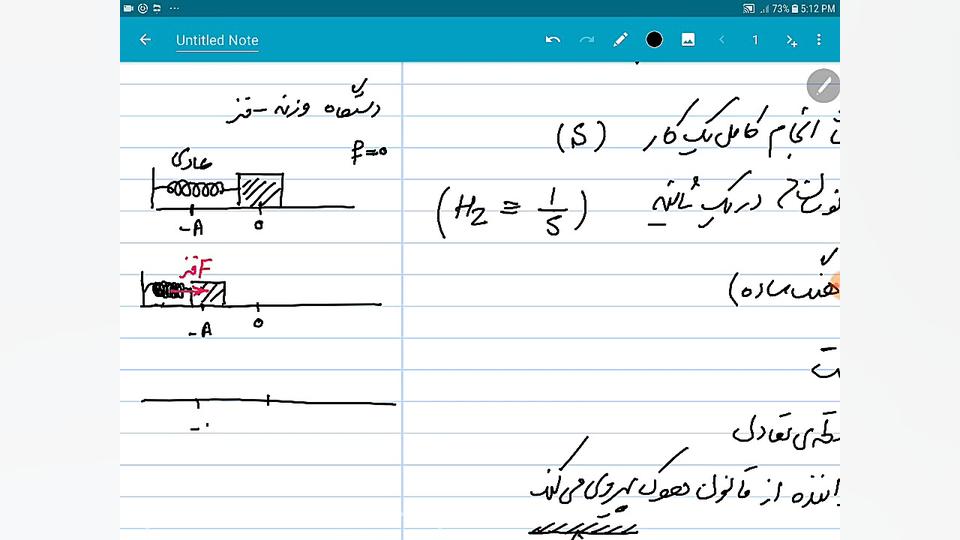 73% 5:12 PM
Untitled Note
1
دستگاه وزنه - فنر
f=0
عادی
-A 0
F فنر
-A 0
-.
انجام کامل یک کار (S)
در یک ثانیه (Hz ≡ 1/S)
ساده)
ت
ی تعادل
از قانون هوک پیروی می‌کند